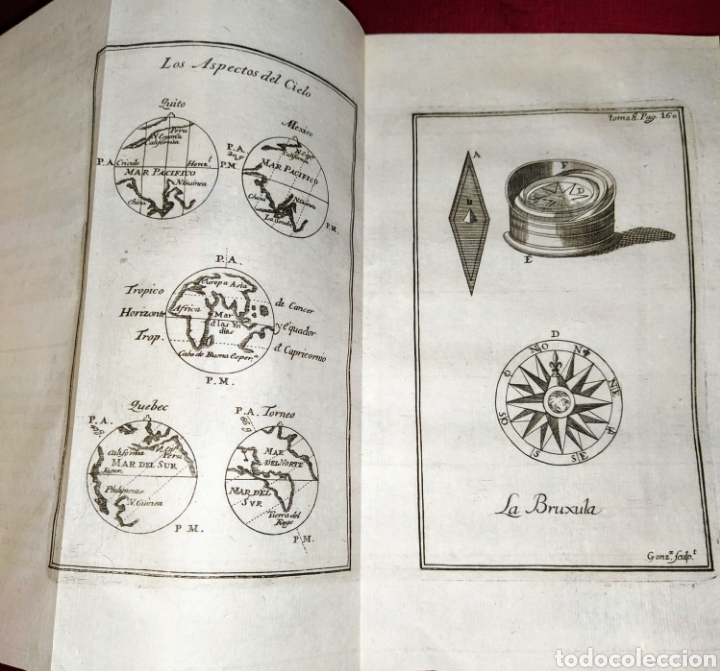 Los Aspectos del Cielo
Quito
Peru
California
P. A.
Circulo
Horiz.^l
P. M.
MAR PACIFICO
N. Guinea
China
Mexico
P. A.
California
MAR PACIFICO
N. Guinea
China
P. M.
P. A.
Europa Asia
Tropico
de Cancer
Africa
Horizonte
Mar
d las Yn
dias
y Equador
Trop.
d. Capricornio
Cabo de Buena Esper.^a
P. M.
Quebec
P. A.
California
Peru
MAR DEL SUR
Japon
Philipinas
N. Guinea
P. M.
Torneo
P. A.
MAR
DEL NORTE
MAR DEL
SVR
Tierra del
Fuego
P. M.
tom. 8. Pag. 160
A
B
F
E
D
NO
N
NE
O
SO
S
SE
La Bruxula
Gonz.^z sculp.^t
todocoleccion